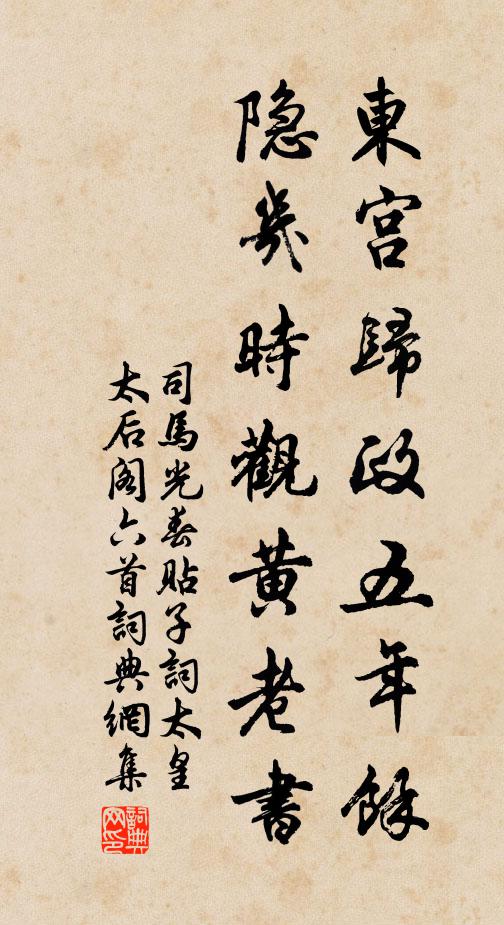 東宮歸政五年餘
隱幾時觀黃老書
司馬光春貼子詞太皇
太后阁六首詞典網集
詞典
网印